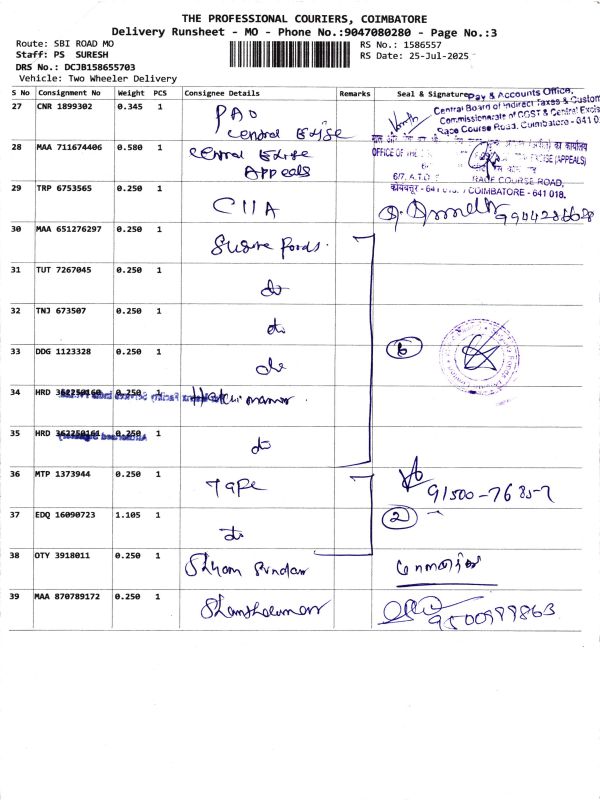 THE PROFESSIONAL COURIERS, COIMBATORE
Delivery Runsheet - MO - Phone No.:9047080280 - Page No.:3
Route: SBI ROAD MO
RS No.: 1586557
Staff: PS SURESH
RS Date: 25-Jul-2025
DRS No.: DCJB158655703
Vehicle: Two Wheeler Delivery
S No Consignment No Weight PCS Consignee Details Remarks Seal & Signature
Pay & Accounts Office,
Central Board of Indirect Taxes & Custom
Commissionerate of CGST & Central Excis
Race Course Road, Coimbatore - 641 0
27 CNR 1899302 0.345 1 PAO
Central Excise
28 MAA 711674406 0.580 1 Central Excise
Appeals
OFFICE OF THE EXCISE (APPEALS)
6/7, A.T.D. RACE COURSE ROAD,
कोयम्बत्तूर - 641 018. / COIMBATORE - 641 018.
29 TRP 6753565 0.250 1
30 MAA 651276297 0.250 1 Foods.
31 TUT 7267045 0.250 1 do
32 TNJ 673507 0.250 1 do
33 DDG 1123328 0.250 1 do
6
34 HRD 362250160 0.250 1
35 HRD 362250161 0.250 1 do
Authorised Signatory
36 MTP 1373944 0.250 1 Tape
91500-7685-7
37 EDQ 16090723 1.105 1 do
2
38 OTY 3918011 0.250 1 Shyam Sundar
39 MAA 870789172 0.250 1
9500999863